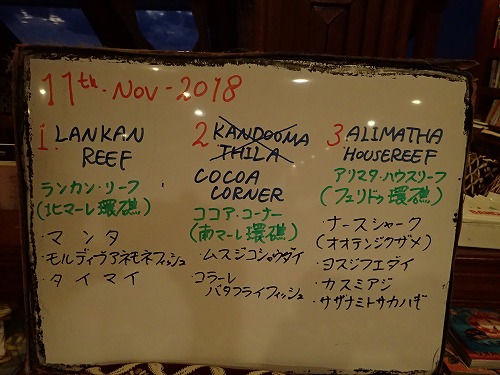 17th. NOV - 2018
1. LANKAN
REEF
ランカン・リーフ
(北マーレ環礁)
・マンタ
・モルディヴアネモネフィッシュ
・タイマイ
2 KANDOOMA
THILA
COCOA
CORNER
ココア・コーナー
(南マーレ環礁)
・ムスジコショウダイ
・コラーレ
バタフライフィッシュ
3. ALIMATHA
HOUSEREEF
アリマタ・ハウスリーフ
(フェリドゥ環礁)
・ナースシャーク
(オオテンジクザメ)
・ヨスジフエダイ
・カスミアジ
・サザナミトサカハギ